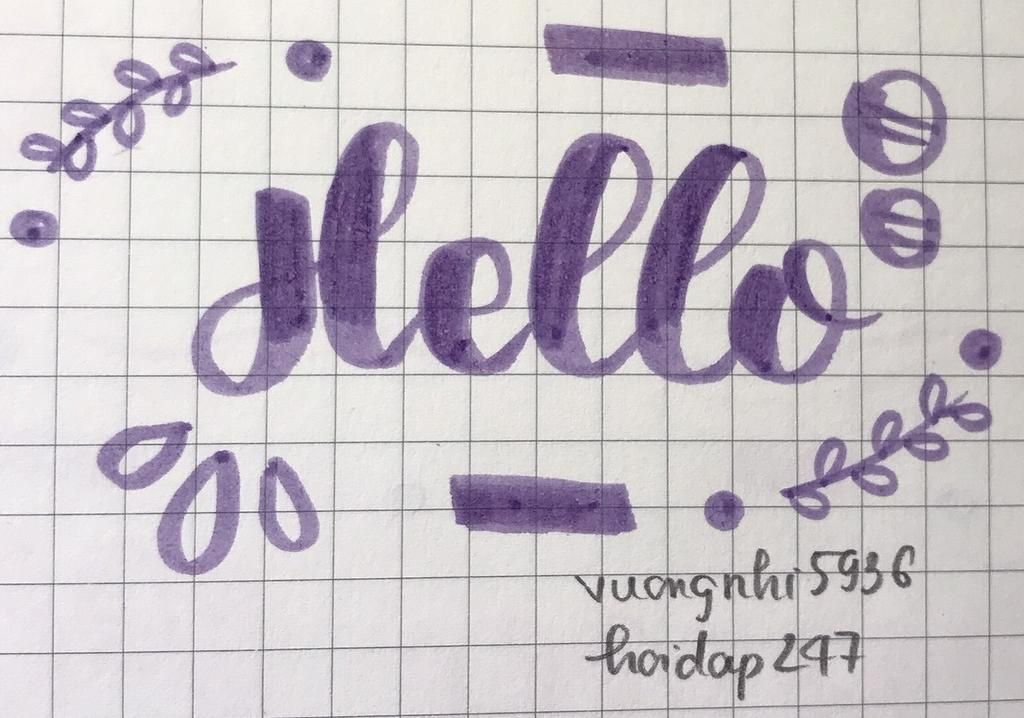 Hello
vuongnhi5936
hoidap247